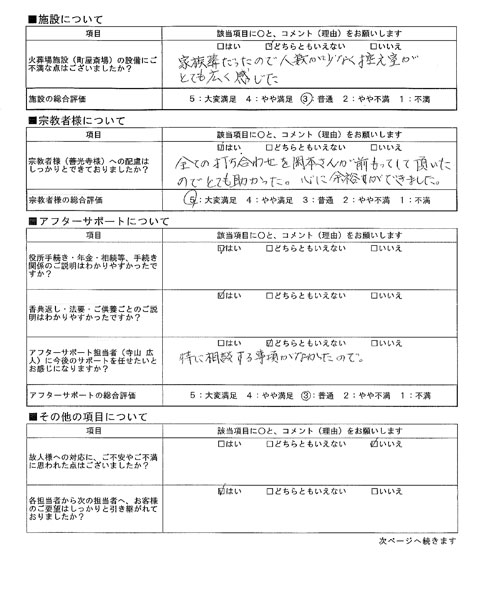 ■施設について
項目 該当項目に○と、コメント（理由）をお願いします
火葬場施設（町屋斎場）の設備にご
不満な点はございましたか？
□はい ☑どちらともいえない □いいえ
家族葬だったので人数が少なく控え室が
とても広く感じた
施設の総合評価 5：大変満足 4：やや満足 ③：普通 2：やや不満 1：不満
■宗教者様について
項目 該当項目に○と、コメント（理由）をお願いします
宗教者様（善光寺様）への配慮は
しっかりとできておりましたか？
☑はい □どちらともいえない □いいえ
全ての打ち合わせを岡本さんが前もってして頂いた
のでとても助かった。心に余裕ができました。
宗教者様の総合評価 ⑤：大変満足 4：やや満足 3：普通 2：やや不満 1：不満
■アフターサポートについて
項目 該当項目に○と、コメント（理由）をお願いします
役所手続き・年金・相続等、手続き
関係のご説明はわかりやすかったで
すか？
☑はい □どちらともいえない □いいえ
香典返し・法要・ご供養ごとのご説
明はわかりやすかったですか？
☑はい □どちらともいえない □いいえ
アフターサポート担当者（寺山 広
人）に今後のサポートを任せたいと
お感じになりますか？
□はい ☑どちらともいえない □いいえ
特に相談する事項がなかったので。
アフターサポートの総合評価 5：大変満足 4：やや満足 ③：普通 2：やや不満 1：不満
■その他の項目について
項目 該当項目に○と、コメント（理由）をお願いします
故人様への対応に、ご不安やご不満
に思われた点はございましたか？
□はい □どちらともいえない ☑いいえ
各担当者から次の担当者へ、お客様
のご要望はしっかりと引き継がれて
おりましたか？
☑はい □どちらともいえない □いいえ
次ページへ続きます